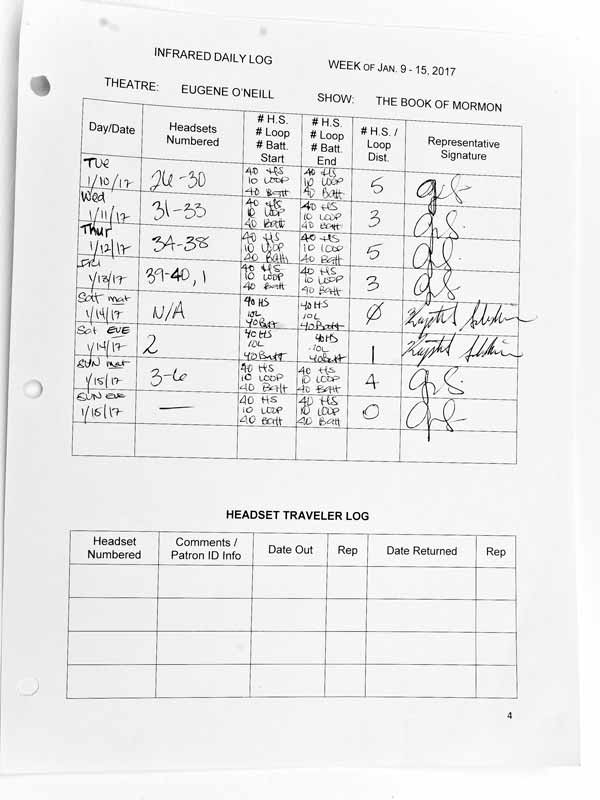 INFRARED DAILY LOG WEEK OF JAN. 9 - 15, 2017
THEATRE: EUGENE O'NEILL SHOW: THE BOOK OF MORMON
Day/Date
Headsets
Numbered
# H.S.
# Loop
# Batt.
Start
# H.S.
# Loop
# Batt.
End
# H.S. /
Loop
Dist.
Representative
Signature
Tue
1/10/17
26-30
40 HS
10 LOOP
40 Batt
40 HS
10 LOOP
40 Batt
5
Wed
1/11/17
31-33
40 HS
10 LOOP
40 Batt
40 HS
10 LOOP
40 Batt
3
Thur
1/12/17
34-38
40 HS
10 LOOP
40 Batt
40 HS
10 LOOP
40 Batt
5
Fri
1/13/17
39-40, 1
40 HS
10 LOOP
40 Batt
40 HS
10 LOOP
40 Batt
3
Sat mat
1/14/17
N/A
40 HS
10L
40 Batt
40 HS
10L
40 Batt
0
Sat EVE
1/14/17
2
40 HS
10L
40 Batt
40 HS
10L
40 Batt
1
SUN mat
1/15/17
3-6
40 HS
10 LOOP
40 Batt
40 HS
10 LOOP
40 Batt
4
SUN EVE
1/15/17
—
40 HS
10 LOOP
40 Batt
40 HS
10 LOOP
40 Batt
0
HEADSET TRAVELER LOG
Headset
Numbered
Comments /
Patron ID Info
Date Out
Rep
Date Returned
Rep
4